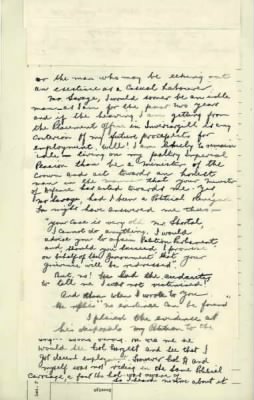 or the man who may be eking out
an existence as a Casual Labourer.
Mr Savage, I would sooner be an idle
man as I am for the past two years
and if the hearing I am getting from
the Placement Officer in Invercargill is any
criterion of my future prospects for
employment, well! I am likely to remain
idle on living on my paltry Imperial
Pension than be a Minister of the
Crown and act toward an honest
man in the manner that your Minister
of Defence has acted towards me. Yes
Mr Savage, had I been a Political
he might have answered me thus —
"Your case is very old Mr
I cannot do anything. I would
advise you to again Petition Parliament
and should you succeed I promise
on behalf of the Government that your
grievance will be redressed".
But, no! he had the audacity
to tell me I was not victimised!
And when I wrote to you
he replies "no evidence can be found
I placed the evidence at
his disposal my Petition to the
me as he
would see Bob Largest and see that I
got decent employment. However Bob and
myself was not riding in the same Liberal
Carriage, &
so I heard nothing about it